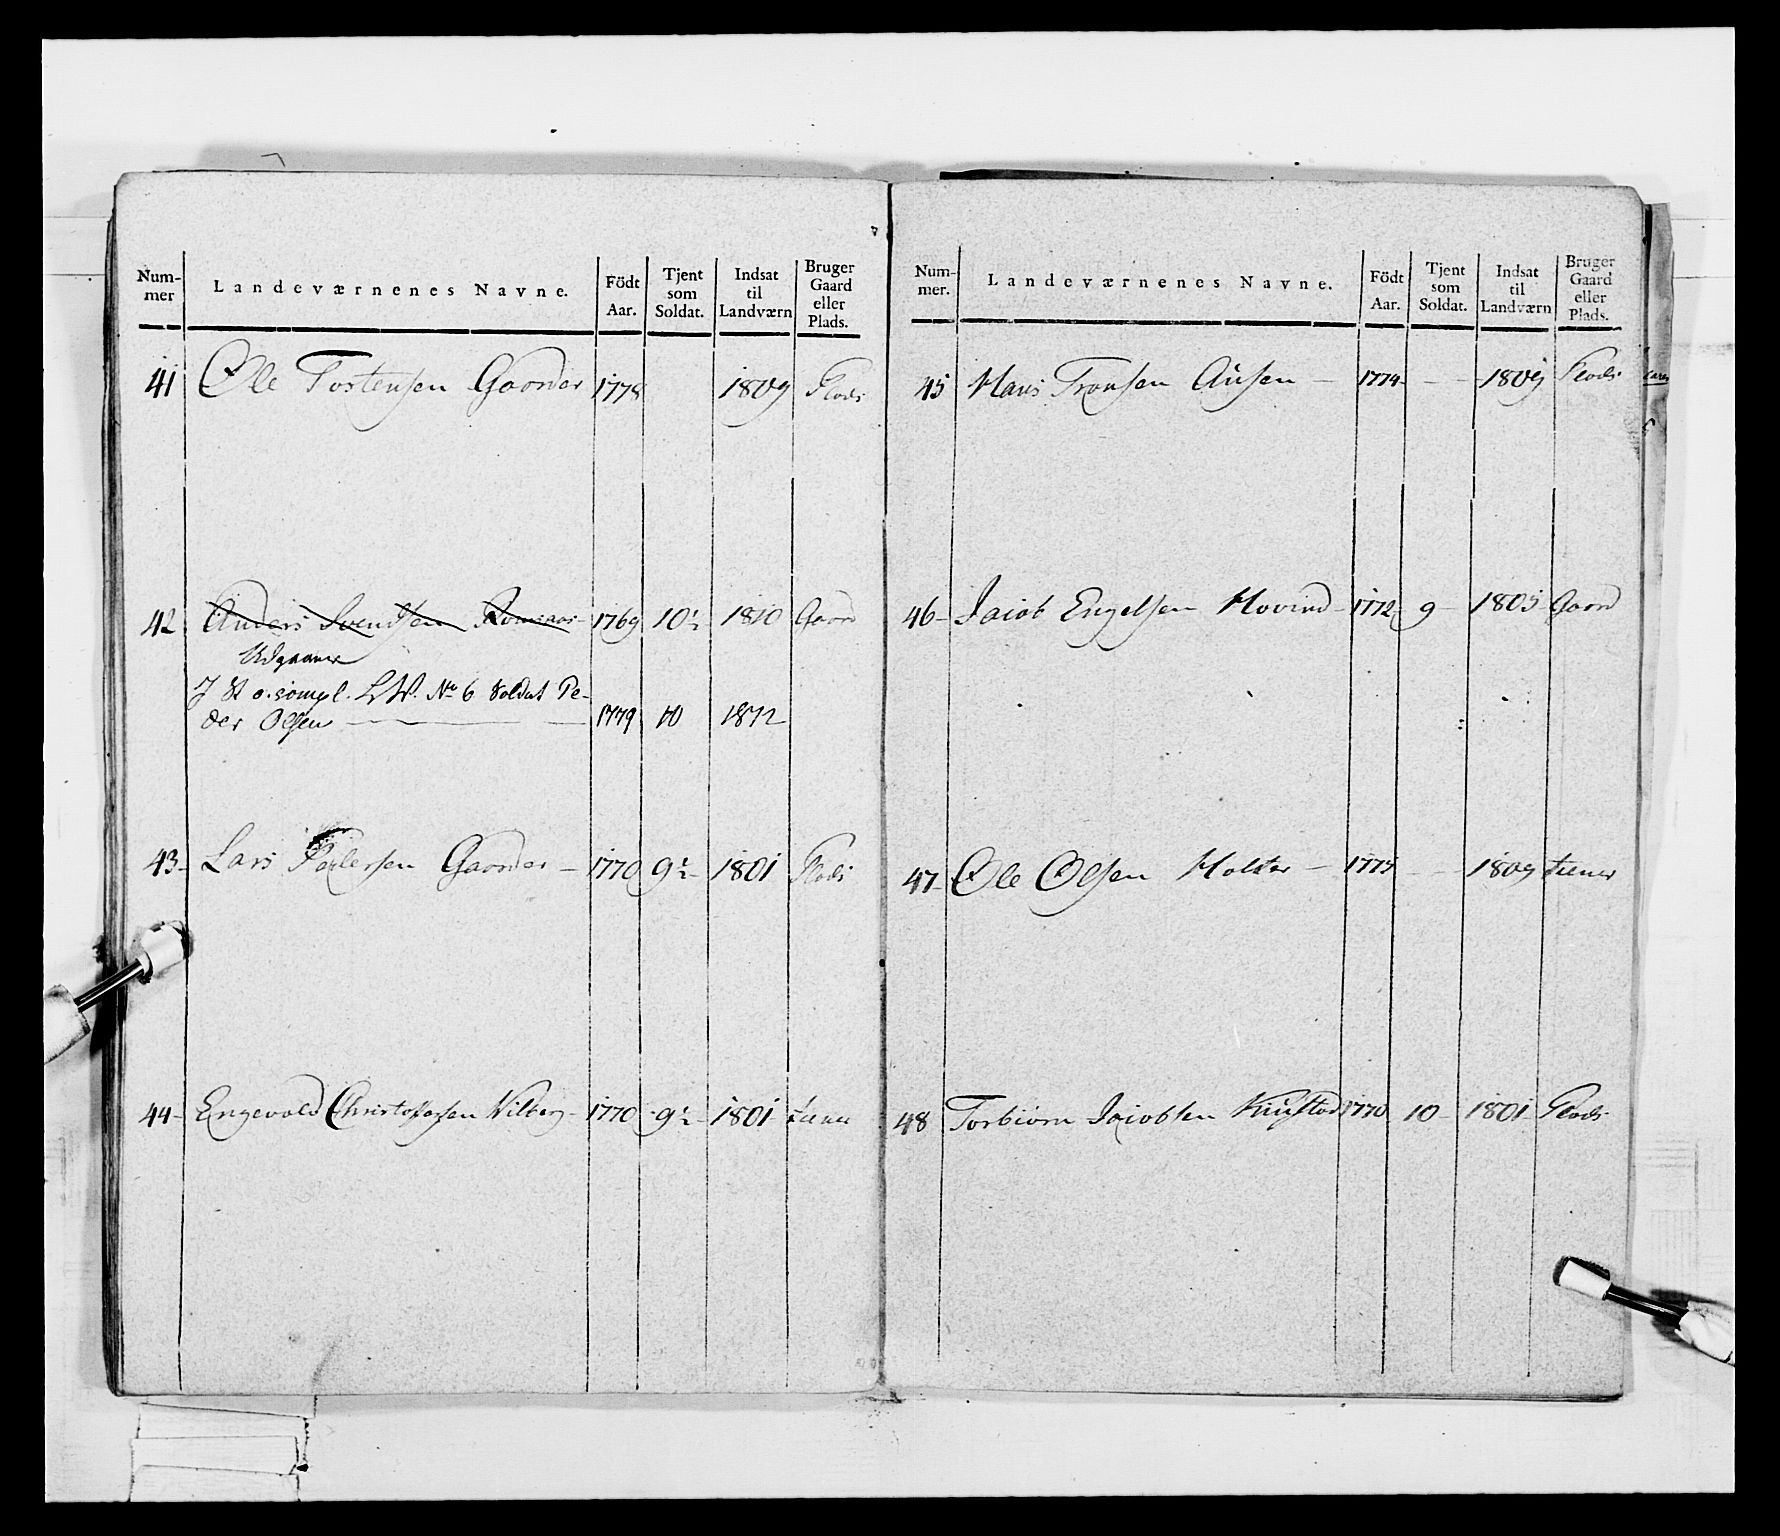 Num-
mer
Landeværnenes Navne.
Födt
Aar.
Tjent
som
Soldat.
Indsat
til
Landværn
Bruger
Gaard
eller
Plads.
41 Ole Tostensen Gaarder 1778 1809 Plads
42 Anders Svendsen 1769 10½ 1810 Gaard
Udgaaner
J St o. sompl. L W. No 6 Soldat Pe-
der Olsen 1779 10 1812
43 Lars Pedersen Gaarder 1770 9½ 1801 Plads
44 Engevold Christophersen Vilberg 1770 9½ 1801
Num-
mer.
Landeværnenes Navne.
Födt
Aar.
Tjent
som
Soldat.
Indsat
til
Landværn
Bruger
Gaard
eller
Plads.
45 Hans Tronsen Ausen 1774 - - 1809 Plads
46 Jacob Engelsen Hovind 1772 9 1805 Gaard
47 Ole Olsen Holter 1775 - - 1809 tiener
48 Torbiörn Jacobsen 1770 10 1801 Plads